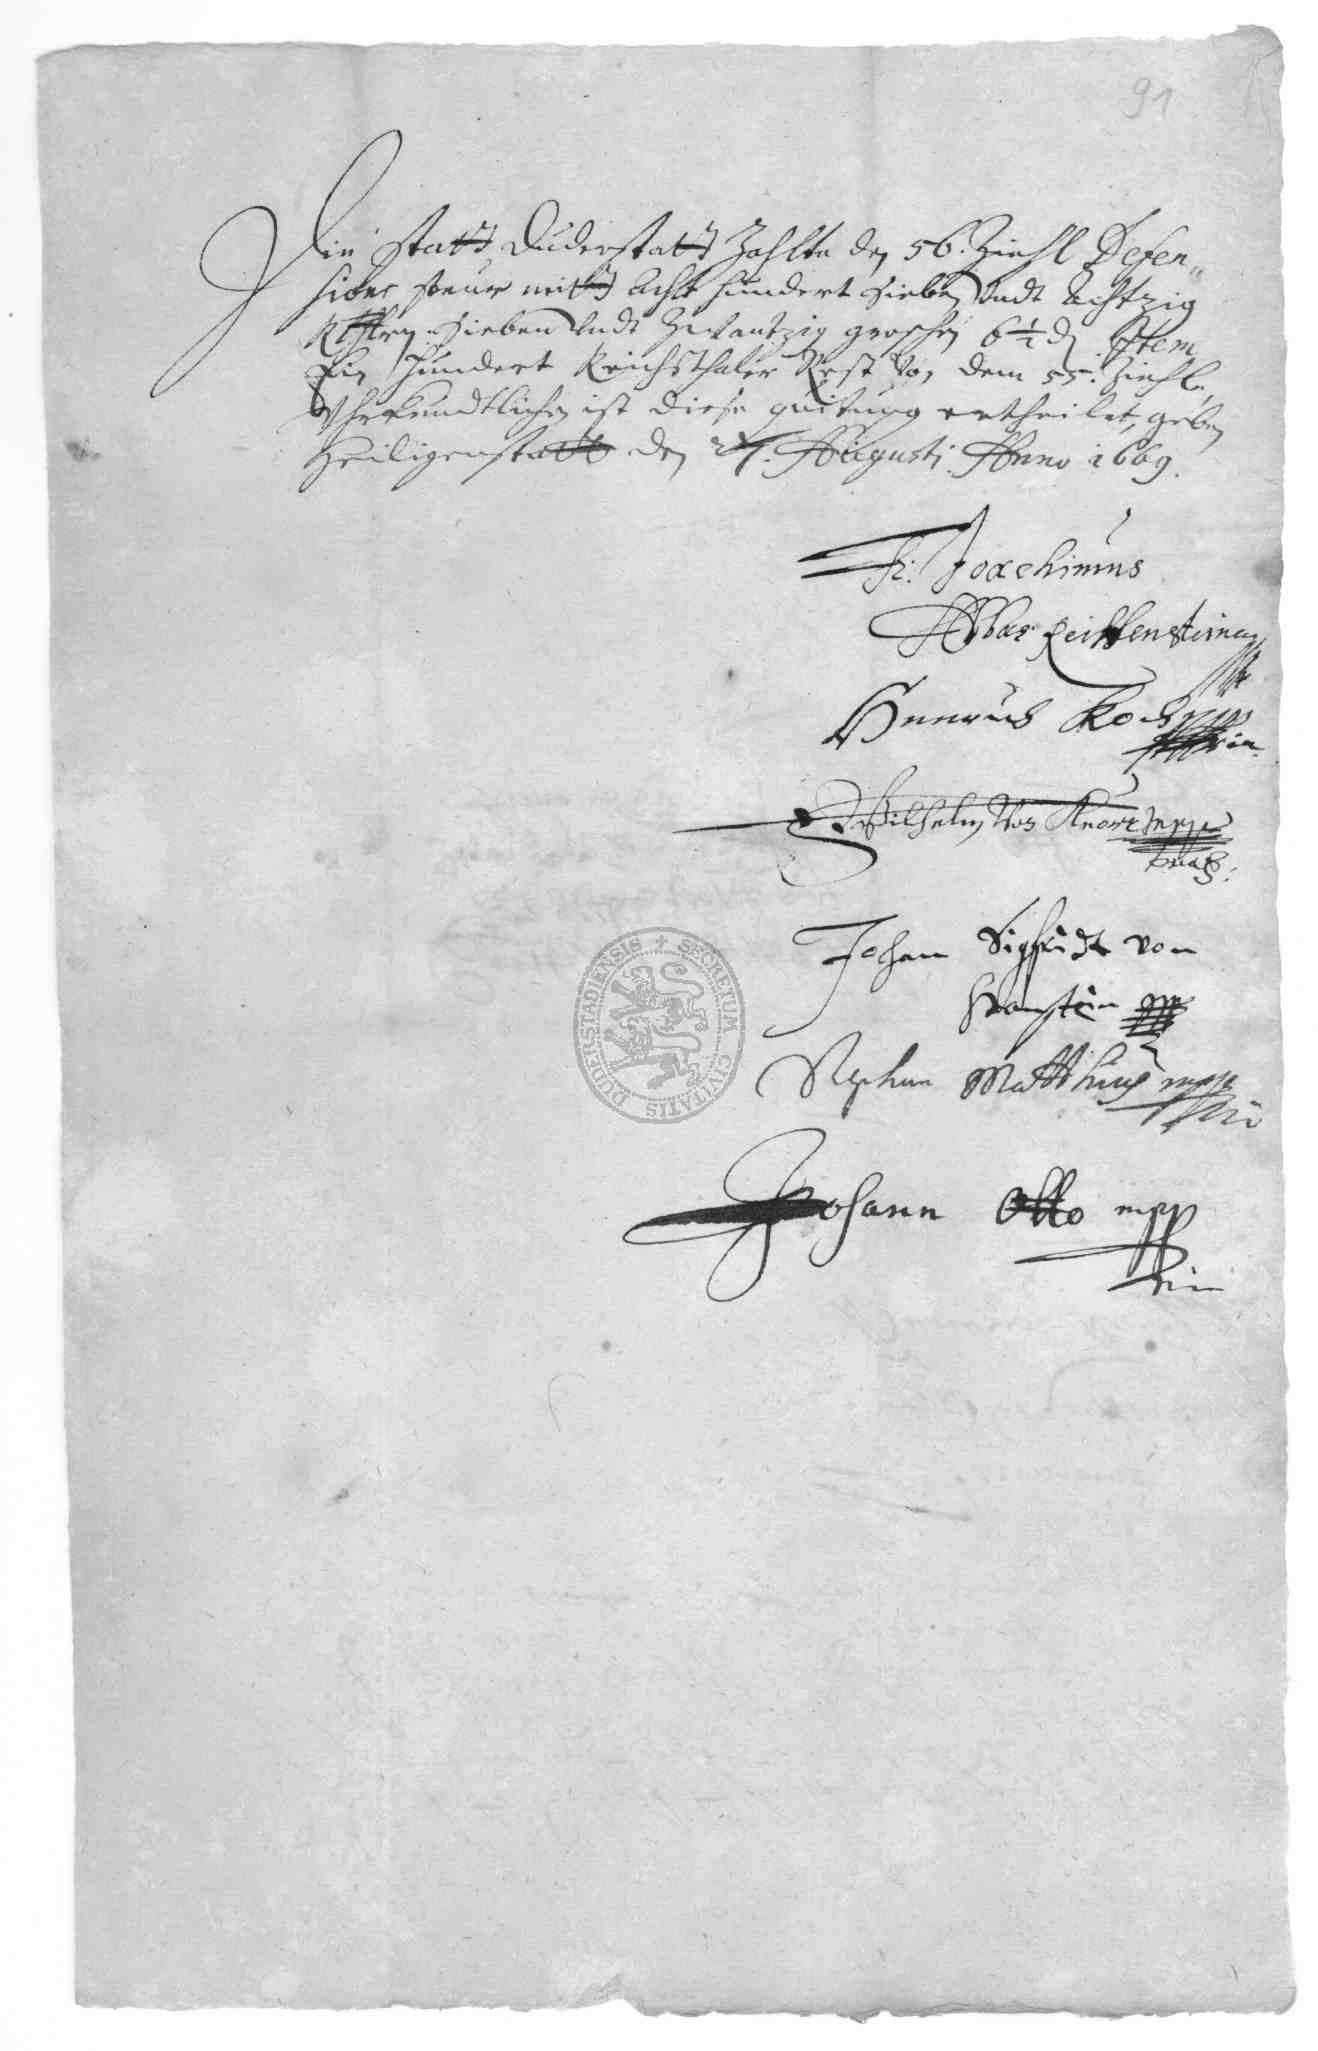 91
Die statt Duderstatt Zahlte den 56. Ziehl Defen„
sions steur mitt Acht hundert Sieben Undt Achtzig
Rthlrn Sieben Undt Zwantzig groschen 6½ ₰ Item
Ein Hundert Reichsthaler Rest Von dem 55. Ziehl,
Uhrkundtlichen ist diese quitung ertheilet, geben
Heiligenstatt den 27. Augusti Anno 1669.
Fr. Joachimus
Abbas Reiffenstein
Henricus Koch mpp
ria
Wilhelm Von Knorr mpp
Johan Sigfridt von
Hanstein mp
Stephan Matthius mpp
ria
Johann Otto mpp
ria
SECRETUM CIVITATIS DUDERSTADIENSIS